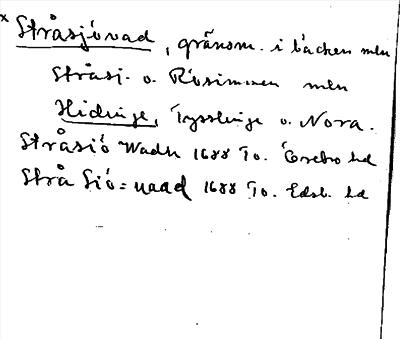 x Stråsjövad, gränsm. i bäcken mln
Stråsj. o. Rösimmen mln
Hidinge, Tysslinge o. Nora.
Stråsiö Wadh 1688 To. Örebro hd
Strå Siö=uadd 1688 To. Edsb. hd